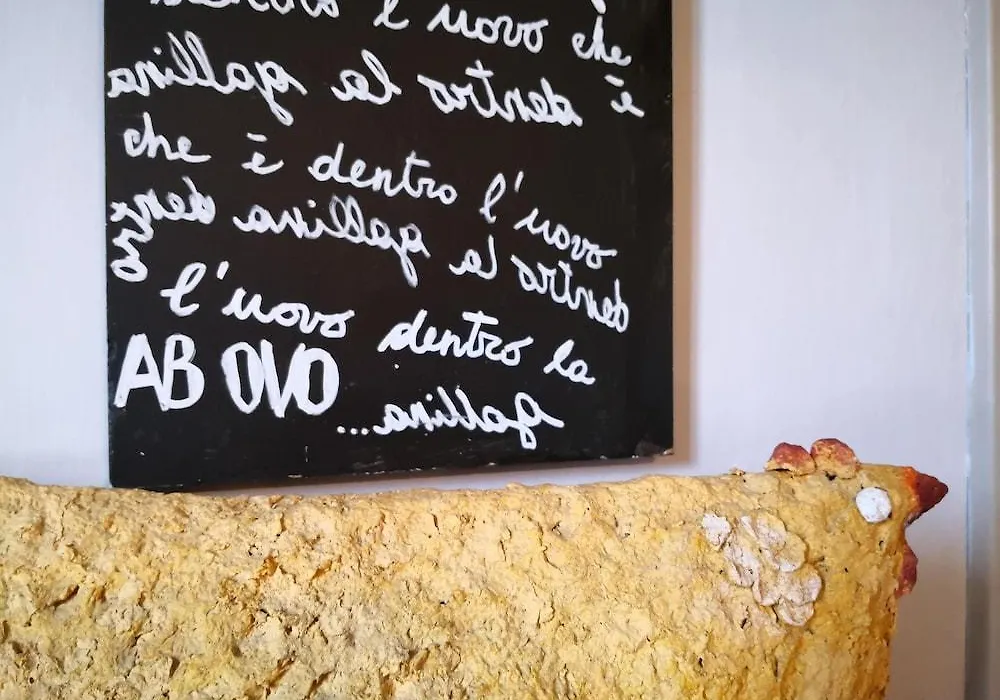 dentro l'uovo che
è dentro la gallina
che è dentro l'uovo
dentro la gallina dentro
l'uovo dentro la
gallina...
AB OVO